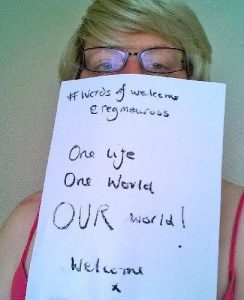 #Words of welcome
@regmeuross
One life
One World
OUR world!
Welcome
x